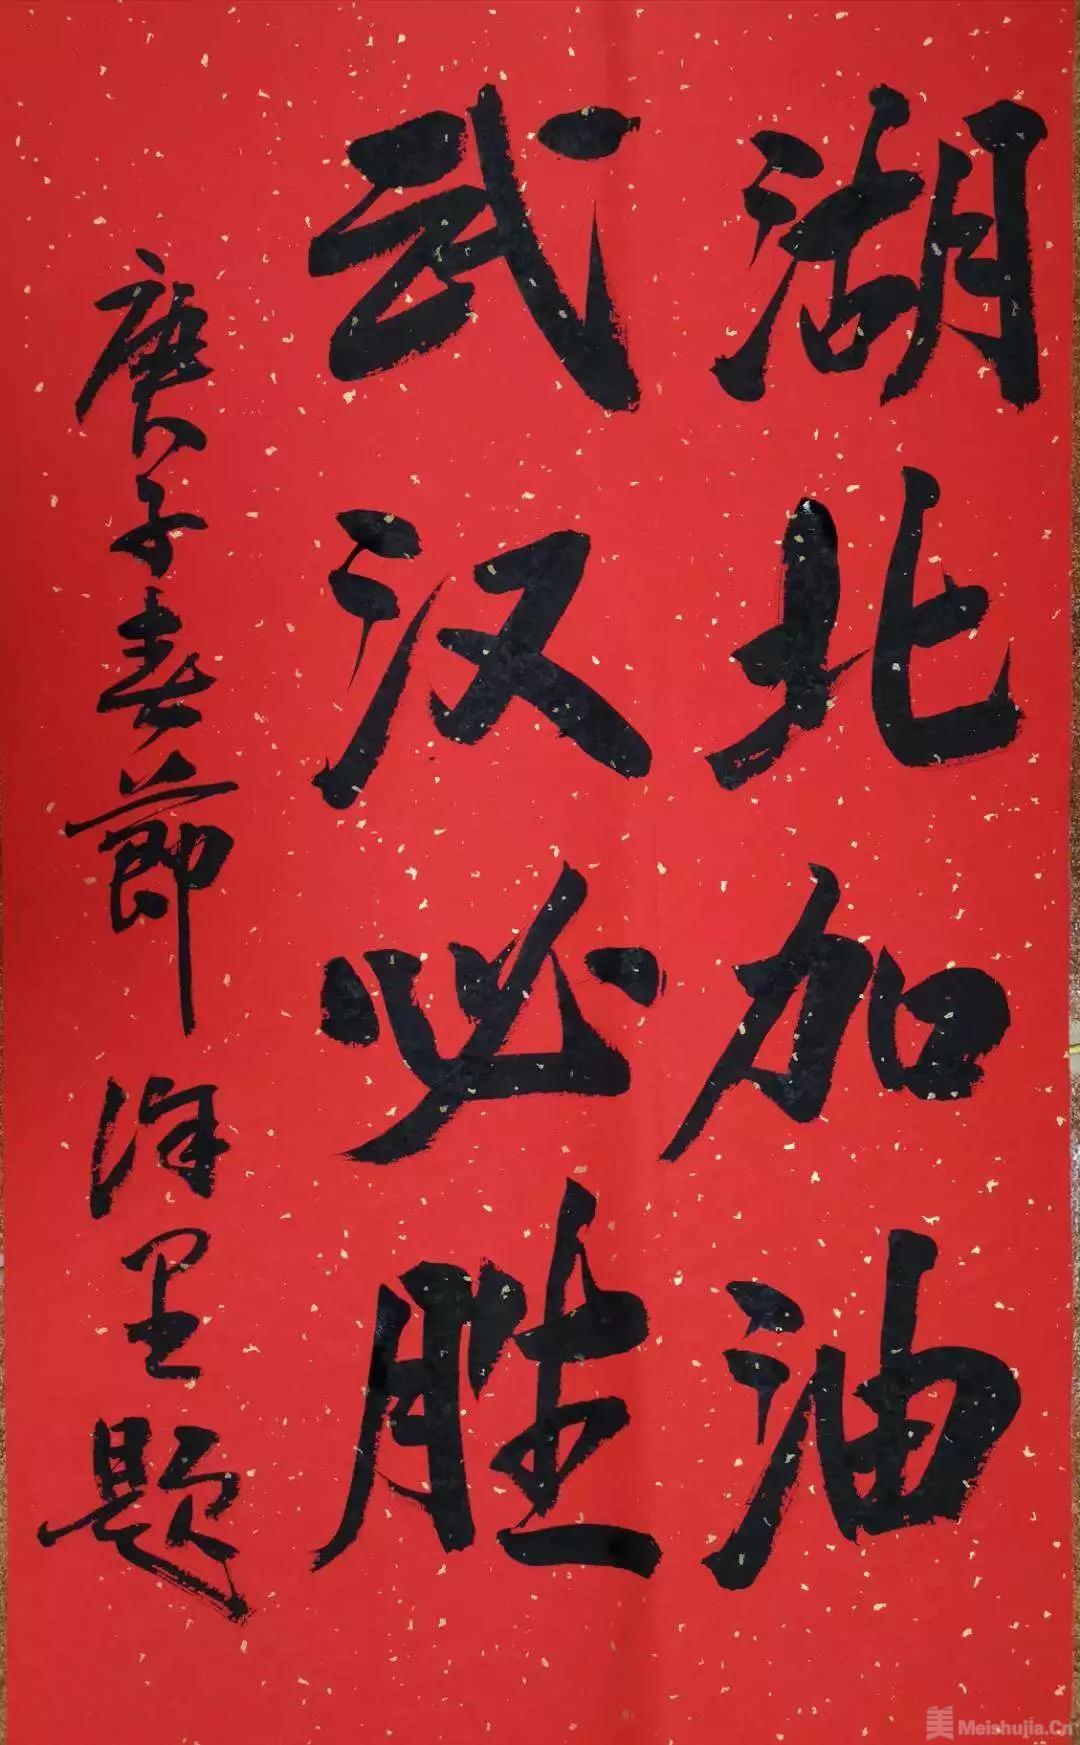 湖北加油
武汉必胜
庚子春節 徐里题
美 Meishujia.Cn